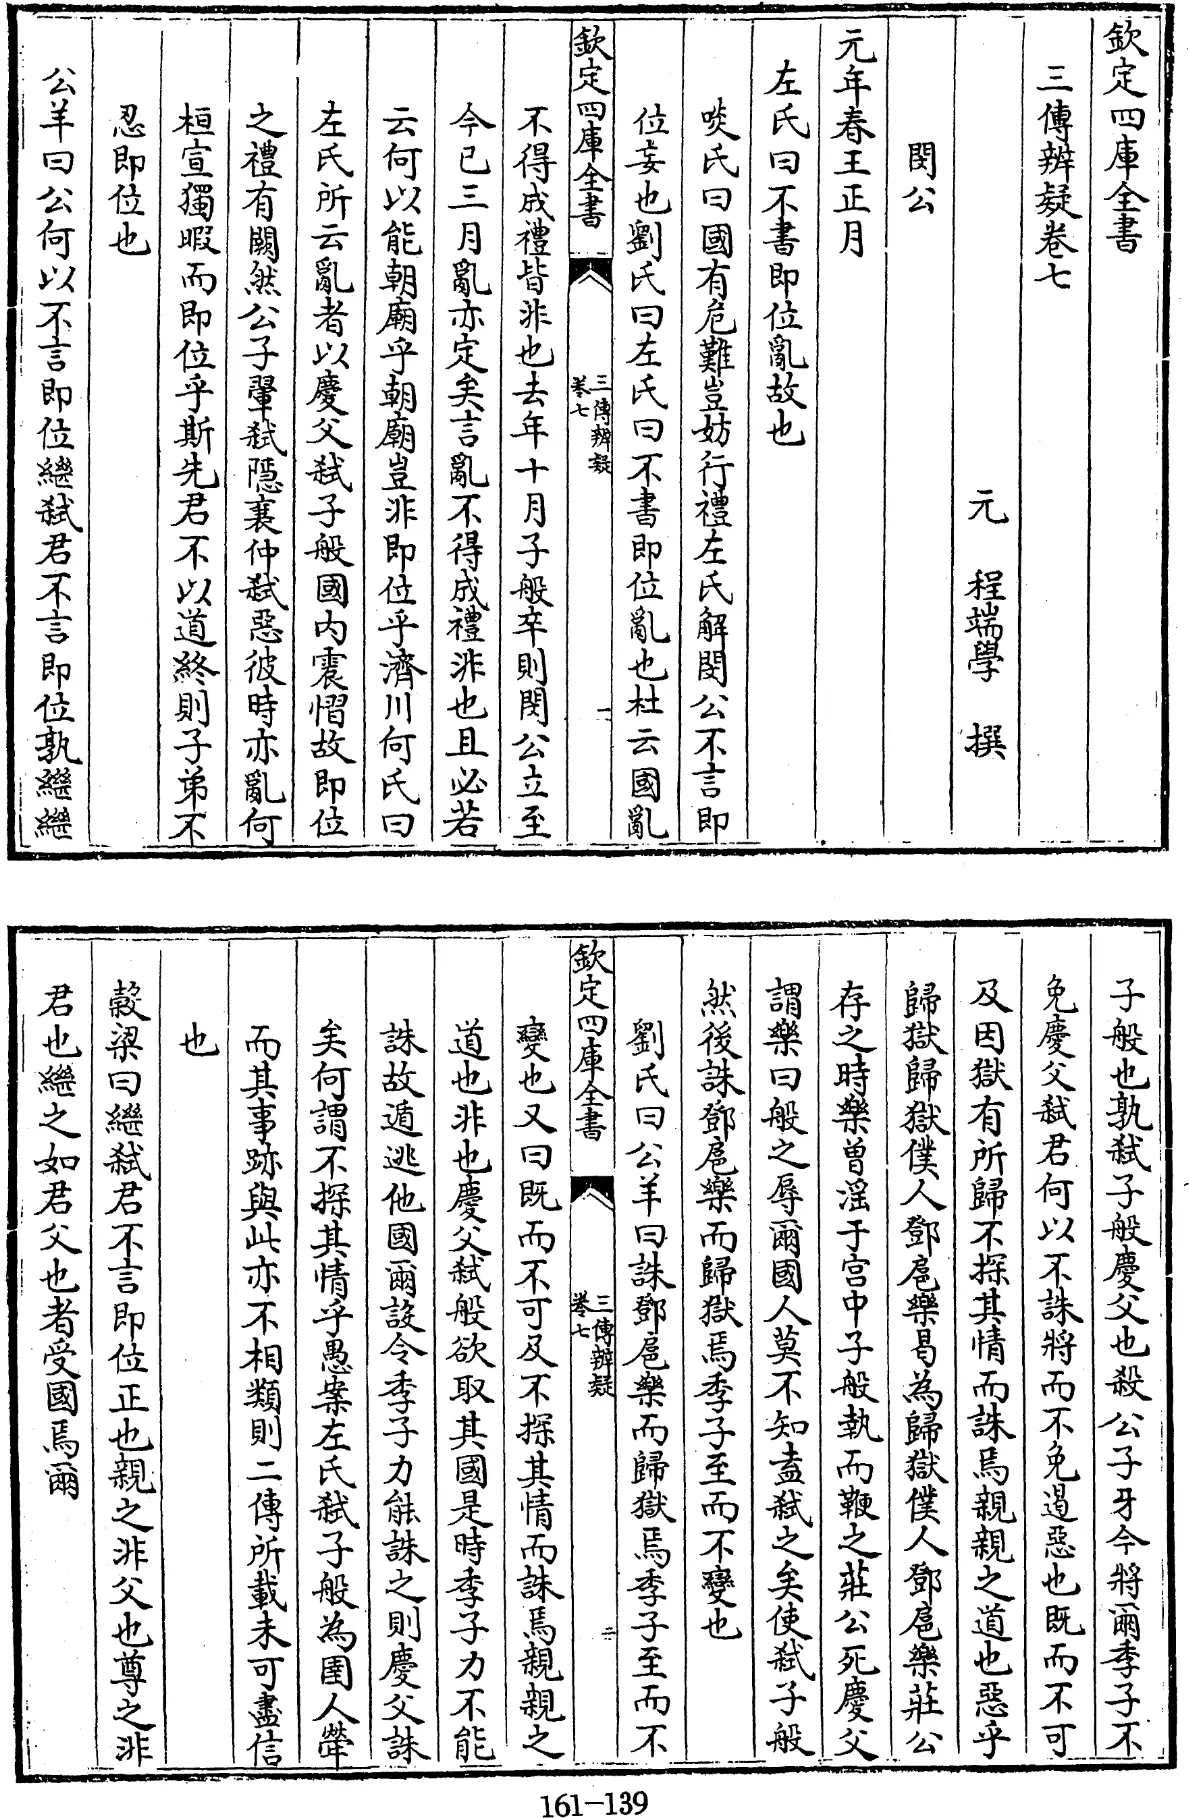 欽定四庫全書
三傳辨疑卷七
元 程端學 撰
閔公
元年春王正月
左氏曰不書即位亂故也
啖氏曰國有危難豈妨行禮左氏解閔公不言即
位妄也劉氏曰左氏曰不書即位亂也杜云國亂
欽定四庫全書 三傳辨疑 卷七 一
不得成禮皆非也去年十月子般卒則閔公立至
今已三月亂亦定矣言亂不得成禮非也且必若
云何以能朝廟乎朝廟豈非即位乎濟川何氏曰
左氏所云亂者以慶父弑子般國内震慴故即位
之禮有闕然公子翬弑隠襄仲弑惡彼時亦亂何
桓宣獨暇而即位乎斯先君不以道終則子弟不
忍即位也
公羊曰公何以不言即位繼弑君不言即位孰繼繼
子般也孰弑子般慶父也殺公子牙今將爾季子不
免慶父弑君何以不誅將而不免遏惡也既而不可
及因獄有所歸不探其情而誅焉親親之道也惡乎
歸獄歸獄僕人鄧扈樂曷為歸獄僕人鄧扈樂莊公
存之時樂曾淫于宮中子般執而鞭之莊公死慶父
謂樂曰般之辱爾國人莫不知盍弑之矣使弑子般
然後誅鄧扈樂而歸獄焉季子至而不變也
劉氏曰公羊曰誅鄧扈樂而歸獄焉季子至而不
欽定四庫全書 三傳辨疑 卷七 二
變也又曰既而不可及不探其情而誅焉親親之
道也非也慶父弑般欲取其國是時季子力不能
誅故遁逃他國爾設令季子力能誅之則慶父誅
矣何謂不探其情乎愚案左氏弑子般為圉人犖
而其事跡與此亦不相類則二傳所載未可盡信
也
穀梁曰繼弑君不言即位正也親之非父也尊之非
君也繼之如君父也者受國焉爾
161-139